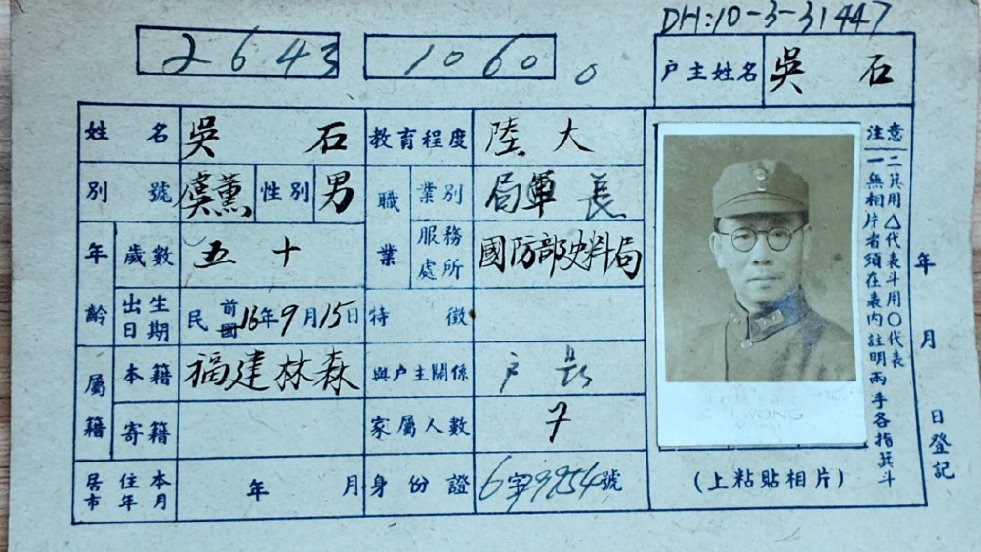 DH:10-3-31447
2643 1060 0
戶主姓名 吳石
姓名 吳石 教育程度 陸大
別號 虞薰 性別 男 職業 業別 軍 局長
年齡 歲數 五十 服務處所 國防部史料局
出生日期 民國前16年9月15日 特徵
屬籍 本籍 福建林森 與戶主關係 戶長
寄籍 家屬人數 7
居住本市年月 年 月 身份證 6字9954號
(上粘貼相片)
注意
一無相片者須在表內註明兩手各指箕斗
二箕用△代表斗用○代表
年 月 日登記
WONG